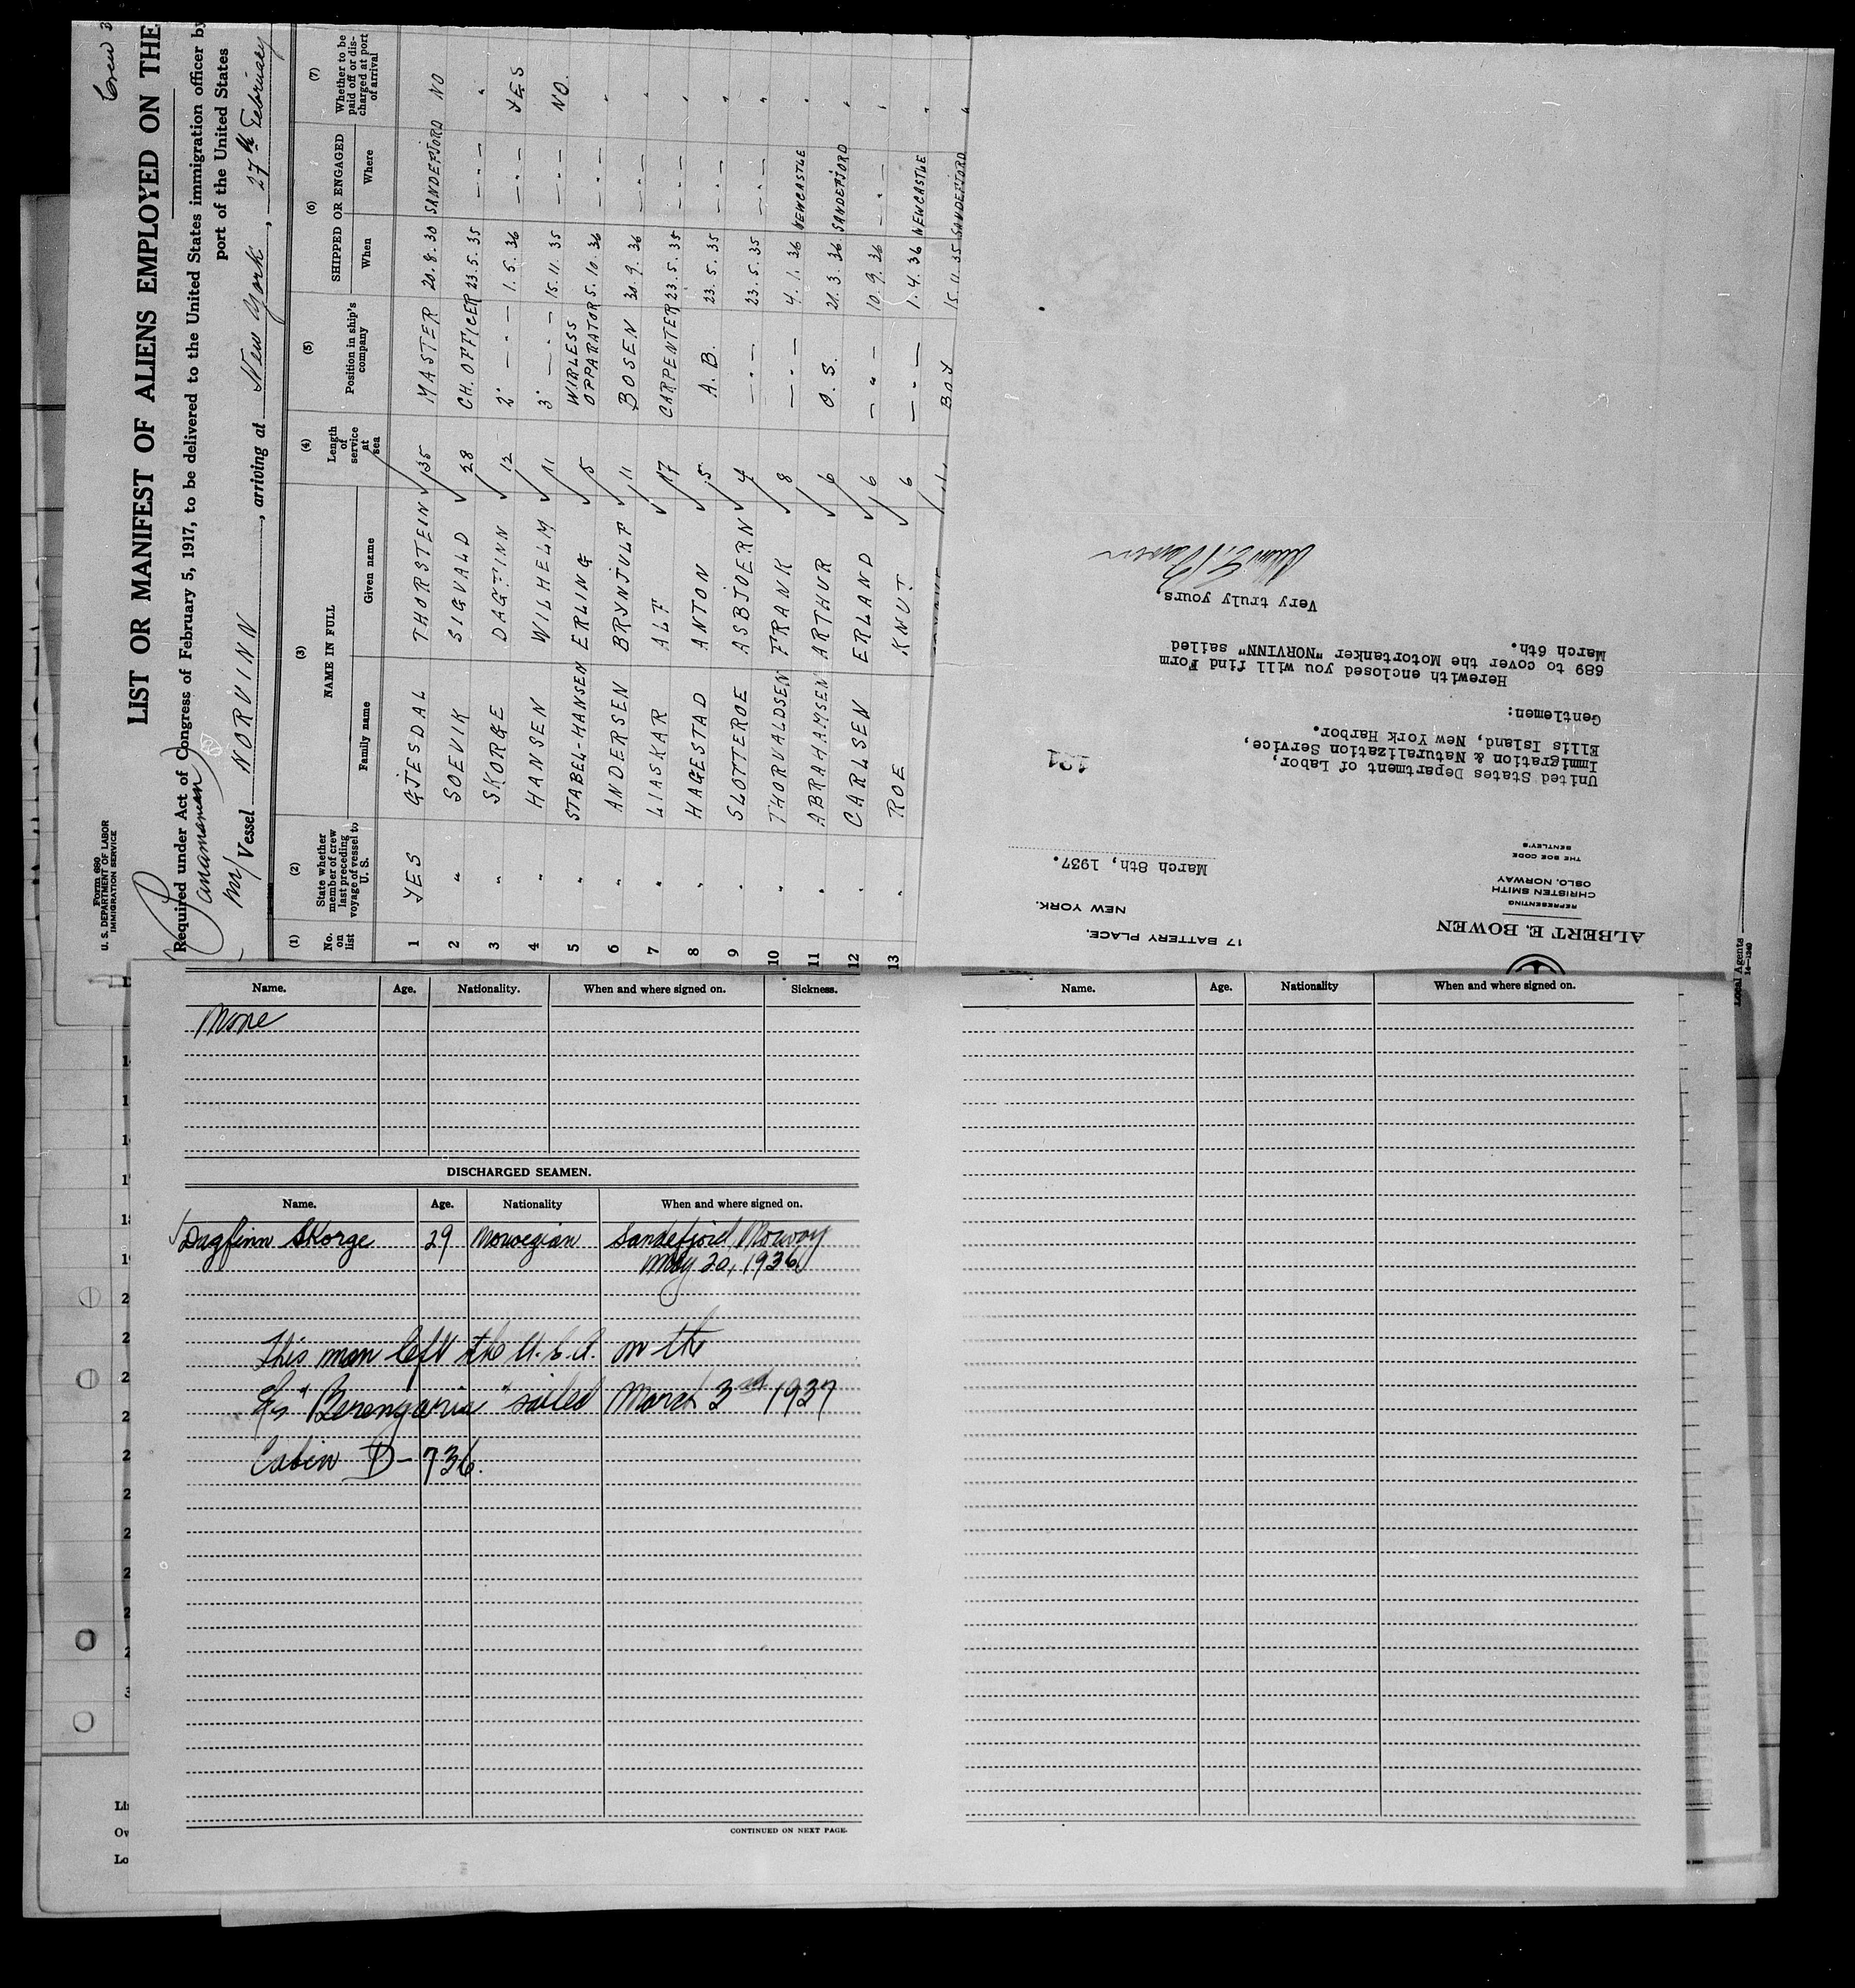 Form 680
U. S. DEPARTMENT OF LABOR
IMMIGRATION SERVICE
Crew
LIST OR MANIFEST OF ALIENS EMPLOYED ON THE
Required under Act of Congress of February 5, 1917, to be delivered to the United States immigration officer by
port of the United States
Panamanian
M/ Vessel NORVINN, arriving at New York, 27th February
(1) (2) (3) (4) (5) (6) (7)
No. on list
State whether member of crew last preceding voyage of vessel to U. S.
NAME IN FULL
Family name Given name
Length of service at sea
Position in ship's company
SHIPPED OR ENGAGED
When Where
Whether to be paid off or discharged at port of arrival
1 YES GJESDAL THORSTEIN 35 MASTER 20.8.30 SANDEFJORD NO
2 " SOEVIK SIGVALD 28 CH. OFFICER 23.5.35 —"— "
3 " SKORGE DAGFINN 12 2' —"— 1.5.36 —"— YES
4 " HANSEN WILHELM 11 3' —"— 15.11.35 —"— NO.
5 " STABEL-HANSEN ERLING 5 WIRLESS OPPARATOR 5.10.36 —"— "
6 " ANDERSEN BRYNJULF 11 BOSEN 30.9.36 —"— "
7 " LIASKAR ALF 17 CARPENTER 23.5.35 —"— "
8 " HAGESTAD ANTON 5 A.B. 23.5.35 —"— "
9 " SLOTTEROE ASBJOERN 4 —"— 23.5.35 —"— "
10 " THORVALDSEN FRANK 8 —"— 4.1.36 NEWCASTLE "
11 " ABRAHAMSEN ARTHUR 6 O.S. 21.3.36 SANDEFJORD "
12 " CARLSEN ERLAND 6 —"— 10.9.36 —"— "
13 " ROE KNUT 6 —"— 1.4.36 NEWCASTLE "
1 BOY 15.11.35 SANDEFJORD "
ALBERT E. BOWEN
REPRESENTING
CHRISTEN SMITH
OSLO, NORWAY
THE BOE CODE
BENTLEY'S
17 BATTERY PLACE,
NEW YORK.
March 8th, 1937.
United States Department of Labor,
Immigration & Naturalization Service,
Ellis Island, New York Harbor.
Gentlemen:
Herewith enclosed you will find Form
689 to cover the Motortanker "NORVINN" sailed
March 6th.
Very truly yours,
Local Agents
Name. Age. Nationality. When and where signed on. Sickness.
None
DISCHARGED SEAMEN.
Name. Age. Nationality When and where signed on.
Dagfinn Skorge 29 Norwegian Sandefjord Norway
May 20, 1936
This man left the U.S.A. on the
S/s "Berengaria" sailed March 3rd 1937
Cabin D-736.
CONTINUED ON NEXT PAGE.
Name. Age. Nationality When and where signed on.